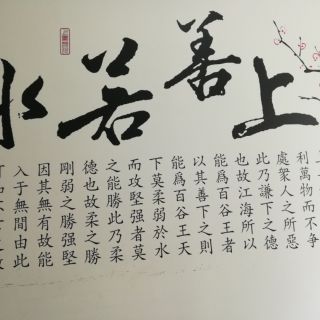 上善若水
利萬物而不爭
處衆人之所惡
此乃謙下之德
也故江海所以
能爲百谷王者
以其善下之則
能爲百谷王天
下莫柔弱於水
而攻堅强者莫
之能勝此乃柔
德也故柔之勝
剛弱之勝强堅
因其無有故能
入于無間由此